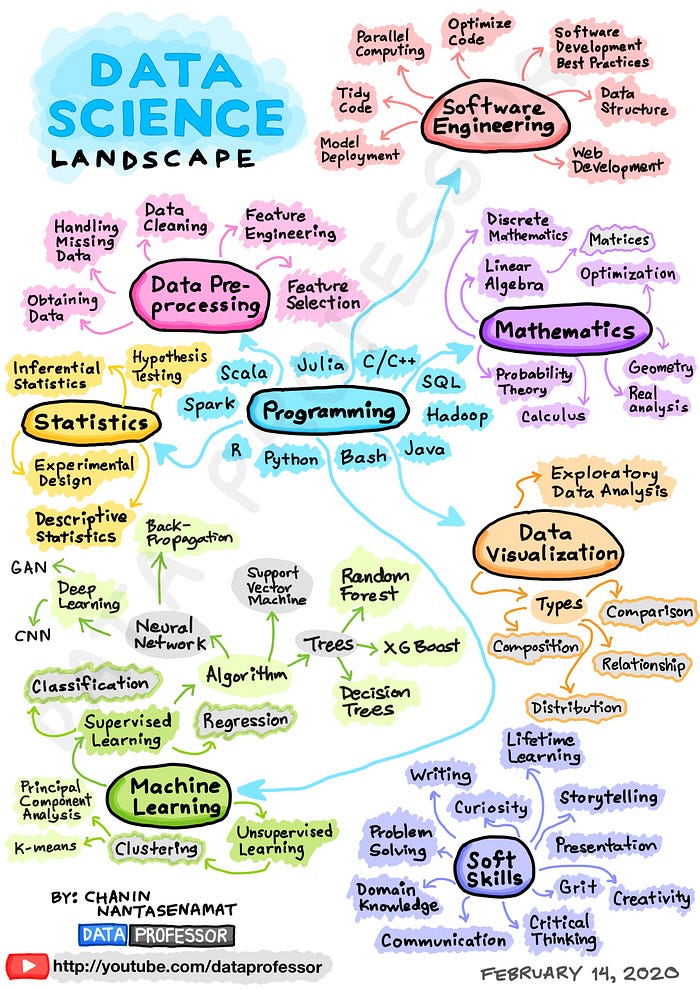 DATA
SCIENCE
LANDSCAPE
Software
Engineering
Parallel
Computing
Optimize
Code
Software
Development
Best Practices
Tidy
Code
Data
Structure
Model
Deployment
Web
Development
Data Pre-
processing
Handling
Missing
Data
Data
Cleaning
Feature
Engineering
Obtaining
Data
Feature
Selection
Mathematics
Discrete
Mathematics
Linear
Algebra
Matrices
Optimization
Probability
Theory
Calculus
Geometry
Real
analysis
Programming
Scala
Julia
C/C++
SQL
Spark
Hadoop
R
Python
Bash
Java
Statistics
Inferential
Statistics
Hypothesis
Testing
Experimental
Design
Descriptive
Statistics
Data
Visualization
Exploratory
Data Analysis
Types
Comparison
Composition
Relationship
Distribution
Machine
Learning
Supervised
Learning
Classification
Regression
Algorithm
Neural
Network
Back-
Propagation
Deep
Learning
GAN
CNN
Support
Vector
Machine
Trees
Random
Forest
XG Boost
Decision
Trees
Unsupervised
Learning
Clustering
Principal
Component
Analysis
K-means
Soft
Skills
Lifetime
Learning
Writing
Curiosity
Storytelling
Problem
Solving
Presentation
Domain
Knowledge
Grit
Creativity
Communication
Critical
Thinking
BY: CHANIN
NANTASENAMAT
DATA PROFESSOR
http://youtube.com/dataprofessor
FEBRUARY 14, 2020
DATA PROFESSOR